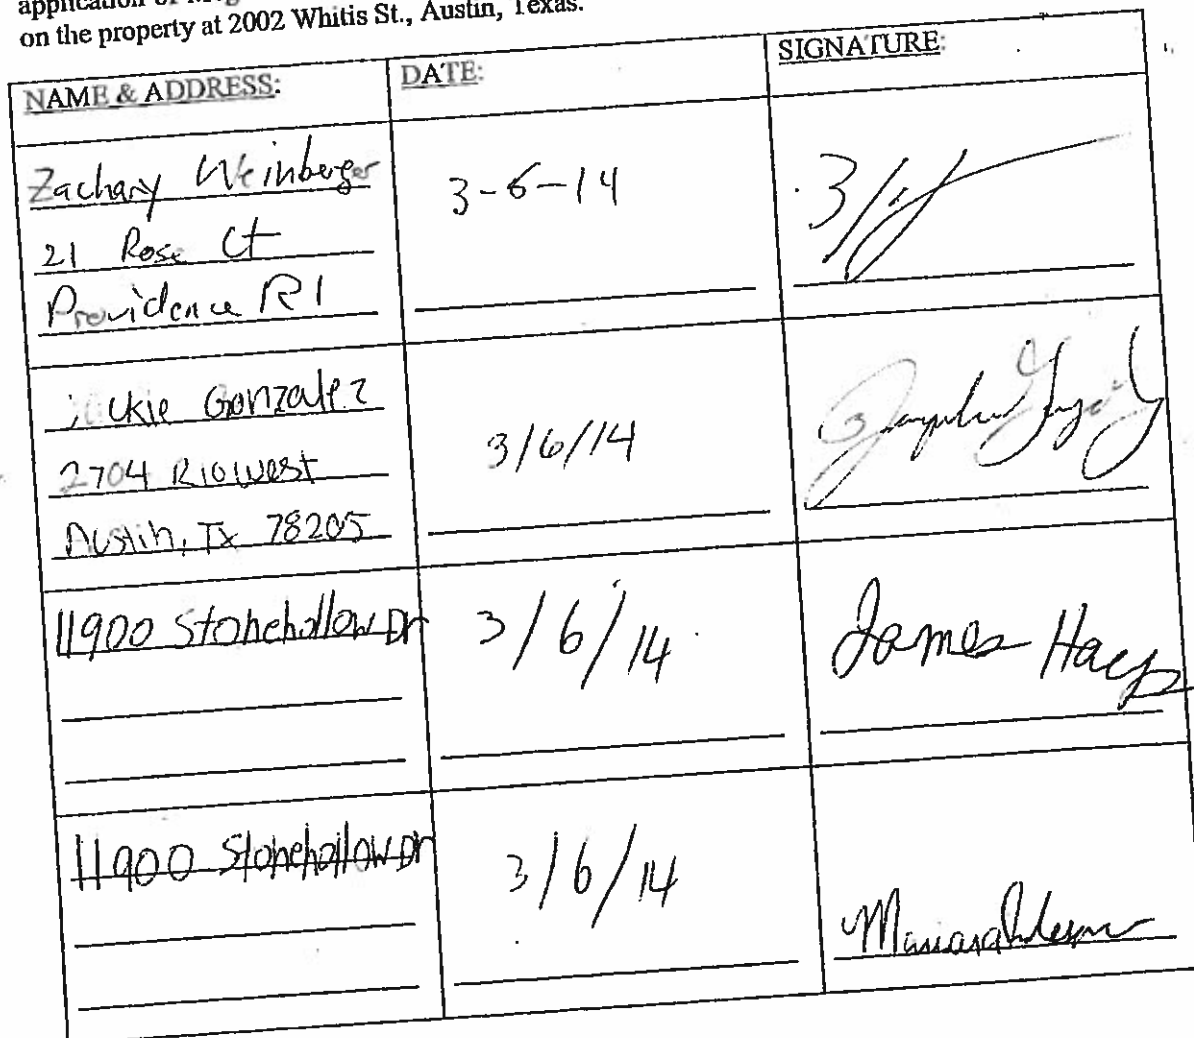 on the property at 2002 Whitis St., Austin, Texas.
NAME & ADDRESS:
DATE:
SIGNATURE:
Zachary Weinberger
21 Rose Ct
Providence RI
3-6-14
Gonzalez
2704 Rio West
Austin, Tx 78205
3/6/14
11900 Stonehollow Dr
3/6/14
James Hays
11900 Stonehollow Dr
3/6/14
Mariana